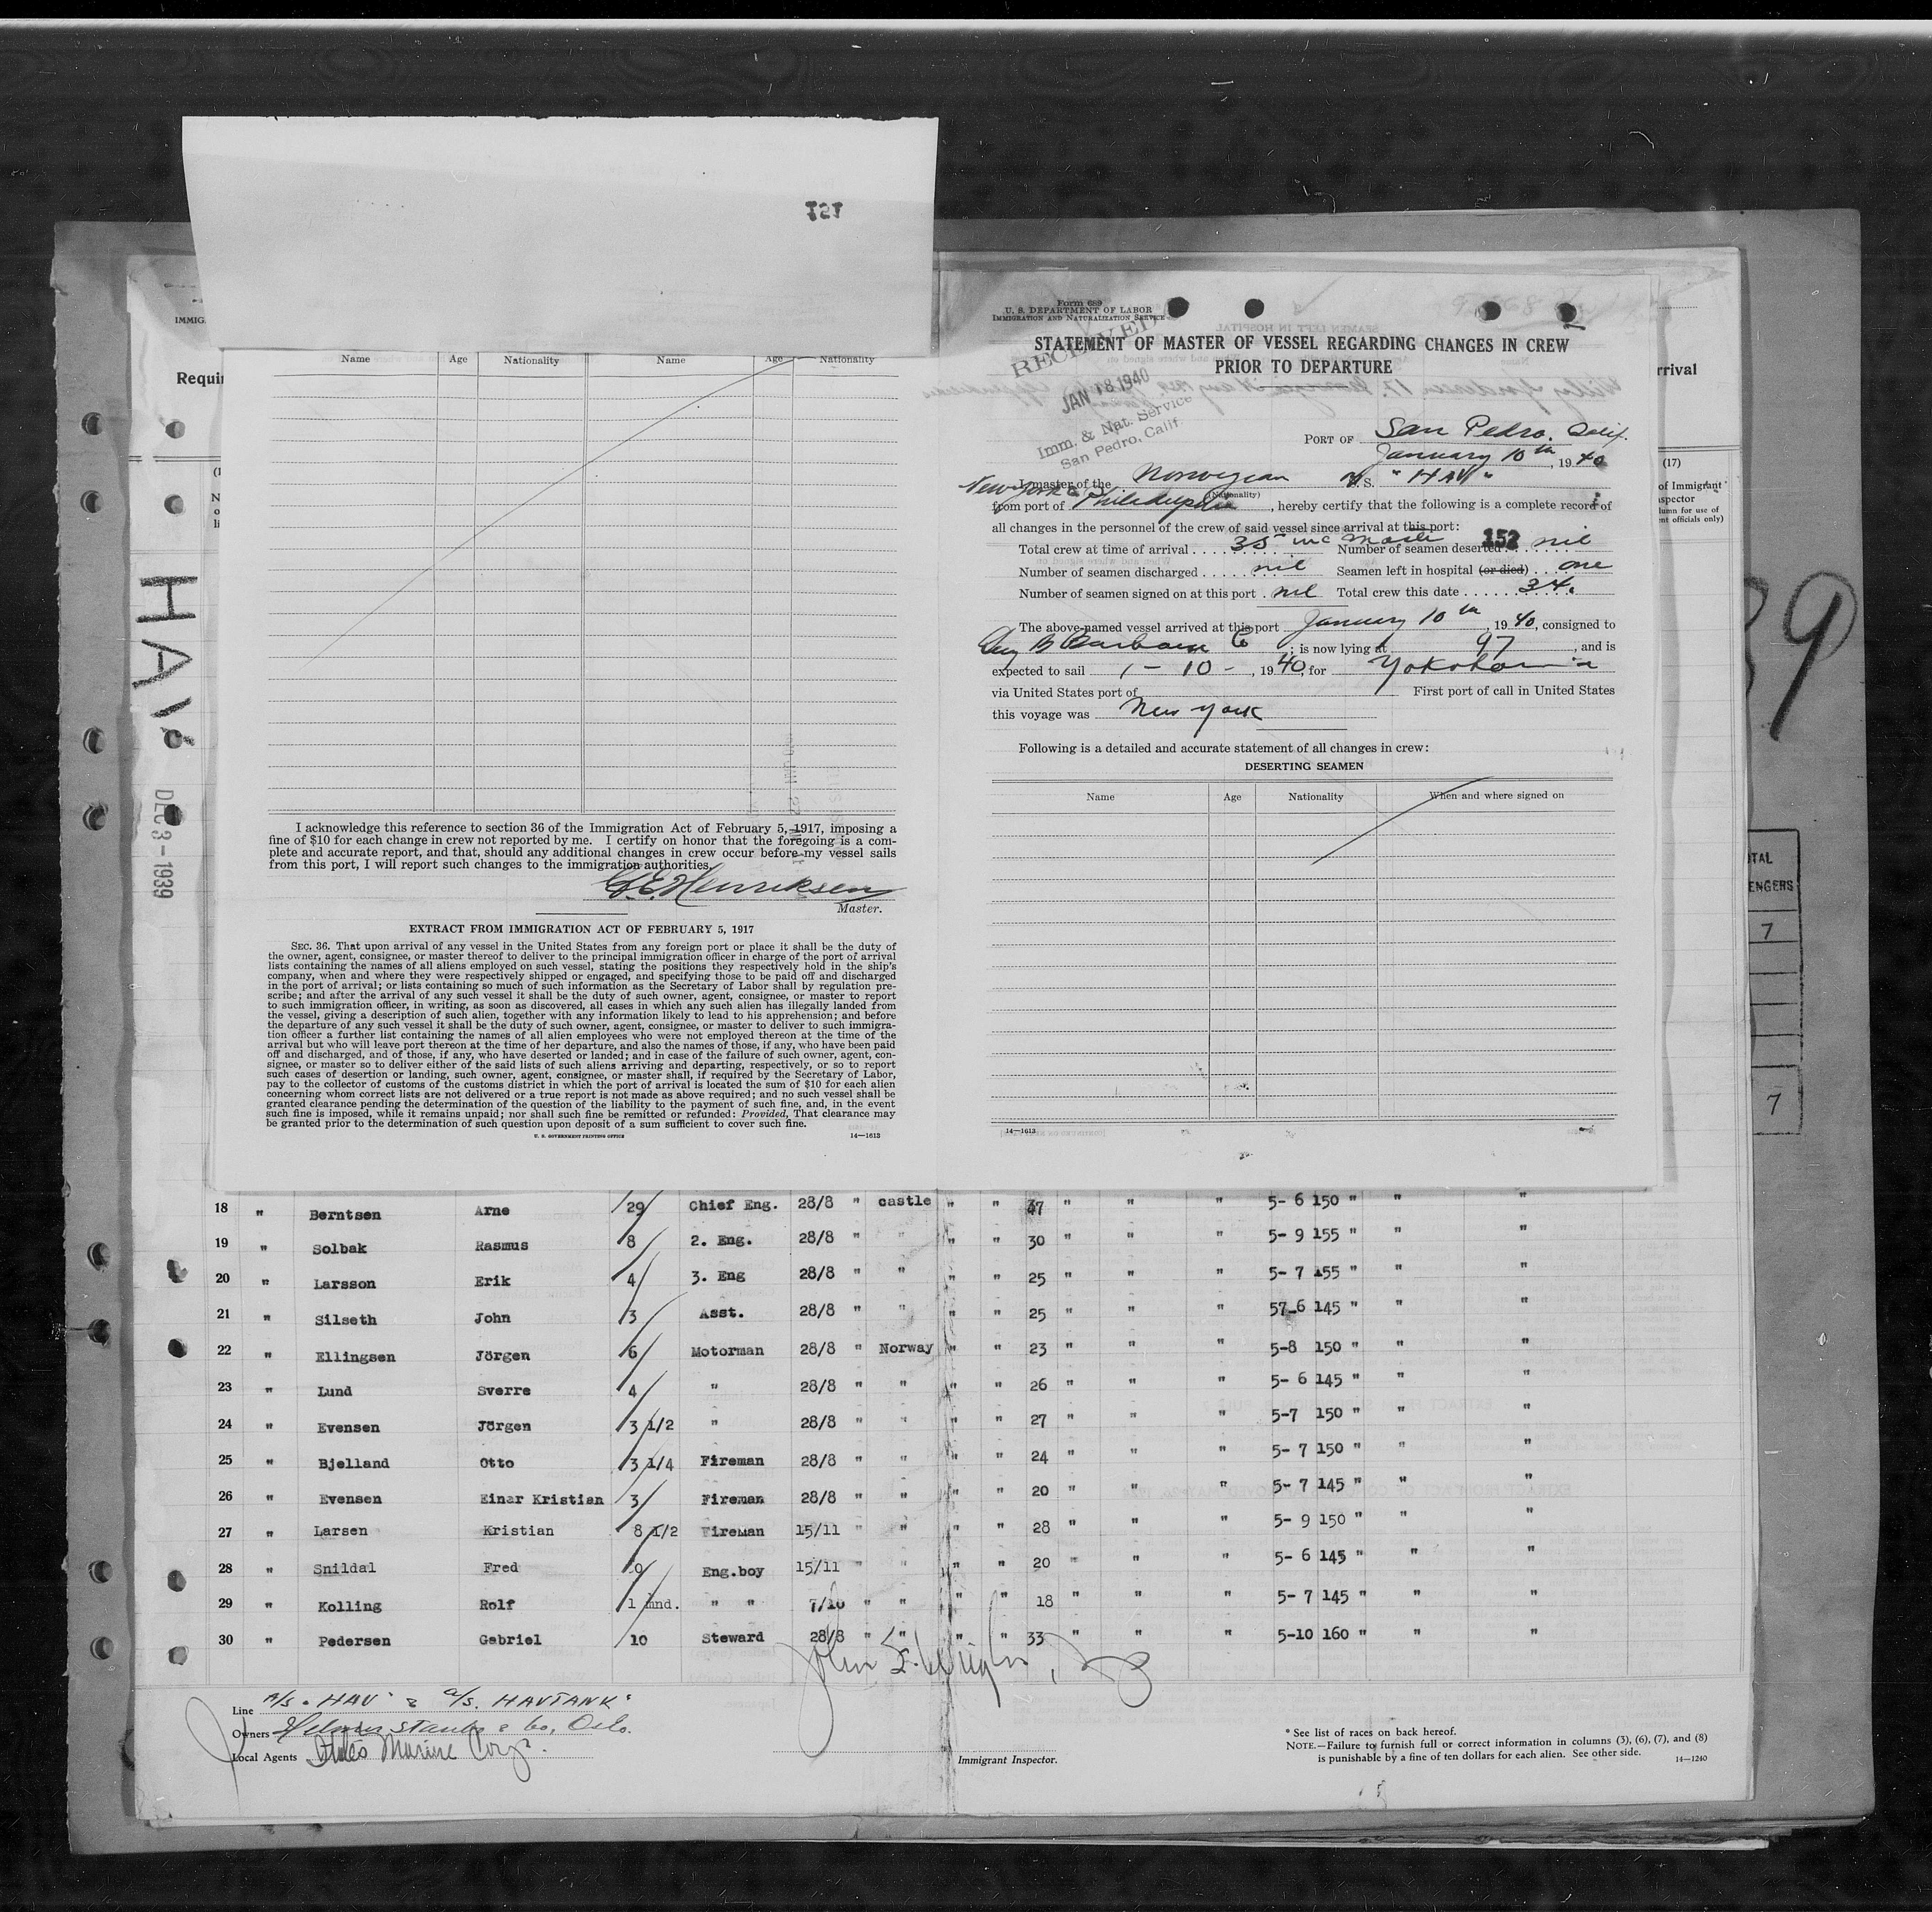 151
IMMIG
Requir
Name Age Nationality Name Age Nationality
HAV
DEC 3 - 1939
I acknowledge this reference to section 36 of the Immigration Act of February 5, 1917, imposing a
fine of $10 for each change in crew not reported by me. I certify on honor that the foregoing is a com-
plete and accurate report, and that, should any additional changes in crew occur before my vessel sails
from this port, I will report such changes to the immigration authorities.
Henriksen
Master.
EXTRACT FROM IMMIGRATION ACT OF FEBRUARY 5, 1917
SEC. 36. That upon arrival of any vessel in the United States from any foreign port or place it shall be the duty of
the owner, agent, consignee, or master thereof to deliver to the principal immigration officer in charge of the port of arrival
lists containing the names of all aliens employed on such vessel, stating the positions they respectively hold in the ship's
company, when and where they were respectively shipped or engaged, and specifying those to be paid off and discharged
in the port of arrival; or lists containing so much of such information as the Secretary of Labor shall by regulation pre-
scribe; and after the arrival of any such vessel it shall be the duty of such owner, agent, consignee, or master to report
to such immigration officer, in writing, as soon as discovered, all cases in which any such alien has illegally landed from
the vessel, giving a description of such alien, together with any information likely to lead to his apprehension; and before
the departure of any such vessel it shall be the duty of such owner, agent, consignee, or master to deliver to such immigra-
tion officer a further list containing the names of all alien employees who were not employed thereon at the time of the
arrival but who will leave port thereon at the time of her departure, and also the names of those, if any, who have been paid
off and discharged, and of those, if any, who have deserted or landed; and in case of the failure of such owner, agent, con-
signee, or master so to deliver either of the said lists of such aliens arriving and departing, respectively, or so to report
such cases of desertion or landing, such owner, agent, consignee, or master shall, if required by the Secretary of Labor,
pay to the collector of customs of the customs district in which the port of arrival is located the sum of $10 for each alien
concerning whom correct lists are not delivered or a true report is not made as above required; and no such vessel shall be
granted clearance pending the determination of the question of the liability to the payment of such fine, and, in the event
such fine is imposed, while it remains unpaid; nor shall such fine be remitted or refunded: Provided, That clearance may
be granted prior to the determination of such question upon deposit of a sum sufficient to cover such fine.
U. S. GOVERNMENT PRINTING OFFICE 14—1613
Form 689
U. S. DEPARTMENT OF LABOR
IMMIGRATION AND NATURALIZATION SERVICE
RECEIVED
JAN 18 1940
Imm. & Nat. Service
San Pedro, Calif.
STATEMENT OF MASTER OF VESSEL REGARDING CHANGES IN CREW
PRIOR TO DEPARTURE
PORT OF San Pedro, Calif.
January 10th, 1940
I, master of the Norwegian M.S. "HAV"
(Nationality)
New York &
from port of Philidelphia, hereby certify that the following is a complete record of
all changes in the personnel of the crew of said vessel since arrival at this port:
152
Total crew at time of arrival 35 inc Master Number of seamen deserted nil
Number of seamen discharged nil Seamen left in hospital (or died) one
Number of seamen signed on at this port nil Total crew this date 34.
The above-named vessel arrived at this port January 10th, 1940, consigned to
Barbour Co; is now lying at 97, and is
expected to sail 1 - 10 -, 1940, for Yokohama
via United States port of First port of call in United States
this voyage was New York
Following is a detailed and accurate statement of all changes in crew:
DESERTING SEAMEN
Name Age Nationality When and where signed on
14—1613
rrival
(17)
of Immigrant
spector
lumn for use of
nt officials only)
9
TAL
ENGERS
7
7
18 " Berntsen Arne 29 Chief Eng. 28/8 " castle " " 37 " " " 5- 6 150 " " "
19 " Solbak Rasmus 8 2. Eng. 28/8 " " " " 30 " " " 5- 9 155 " " "
20 " Larsson Erik 4 3. Eng 28/8 " " " " 25 " " " 5- 7 155 " " "
21 " Silseth John 3 Asst. 28/8 " " " " 25 " " " 57-6 145 " " "
22 " Ellingsen Jörgen 6 Motorman 28/8 " Norway " " 23 " " " 5-8 150 " " "
23 " Lund Sverre 4 " 28/8 " " " " 26 " " " 5- 6 145 " " "
24 " Evensen Jörgen 3 1/2 " 28/8 " " " " 27 " " " 5-7 150 " " "
25 " Bjelland Otto 3 1/4 Fireman 28/8 " " " " 24 " " " 5- 7 150 " " "
26 " Evensen Einar Kristian 3 Fireman 28/8 " " " " 20 " " " 5- 7 145 " " "
27 " Larsen Kristian 8 1/2 Fireman 15/11 " " " " 28 " " " 5- 9 150 " " "
28 " Snildal Fred 0 Eng.boy 15/11 " " " " 20 " " " 5- 6 145 " " "
29 " Kolling Rolf 1 mnd. " " 7/10 " " " " 18 " " " 5- 7 145 " " "
30 " Pedersen Gabriel 10 Steward 28/8 " " " " 33 " " " 5-10 160 " " "
Line A/S "HAV" & A/S. HAVTANK"
Owners Helmer Staubo & Co, Oslo.
Local Agents States Marine Corp.
Immigrant Inspector.
* See list of races on back hereof.
NOTE.—Failure to furnish full or correct information in columns (3), (6), (7), and (8)
is punishable by a fine of ten dollars for each alien. See other side. 14—1240